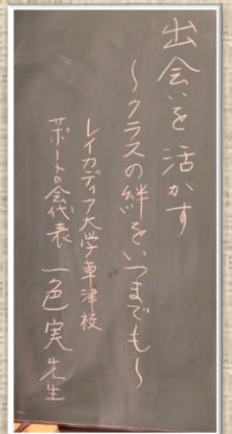 出会いを活かす
〜クラスの絆をいつまでも〜
レイカディア大学草津校
サポートの会代表 一色実先生